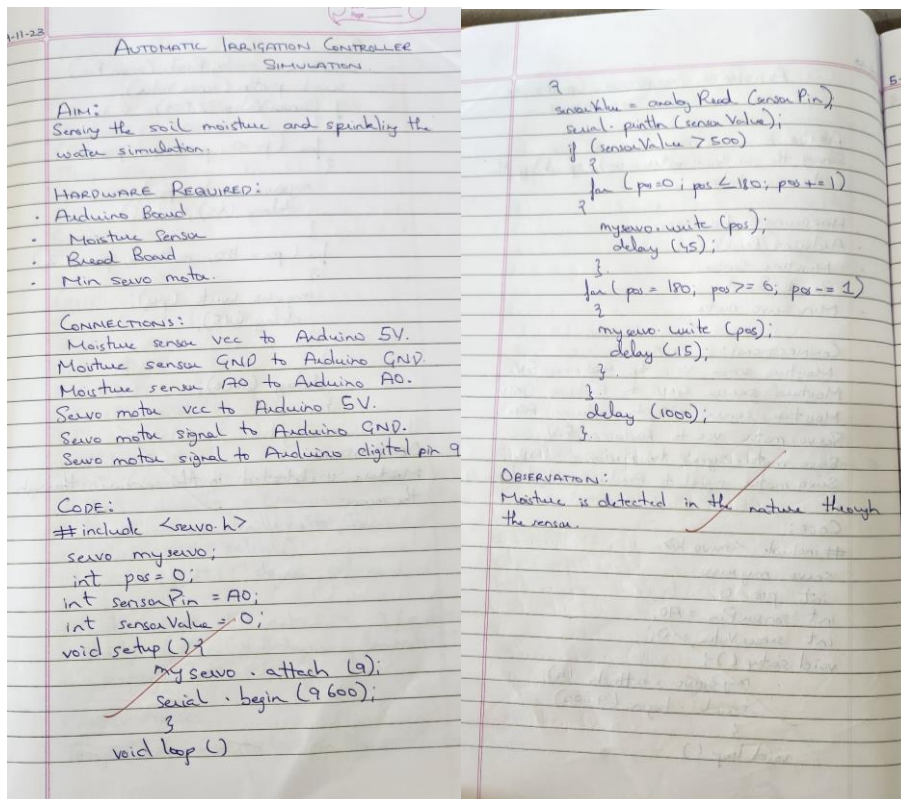 -11-23
AUTOMATIC IRRIGATION CONTROLLER
SIMULATION
AIM:
Sensing the soil moisture and sprinkling the
water simulation.
HARDWARE REQUIRED:
. Arduino Board
. Moisture Sensor
. Bread Board
. Min servo motor.
CONNECTIONS:
Moisture sensor vcc to Arduino 5V.
Moisture sensor GND to Arduino GND.
Moisture sensor A0 to Arduino A0.
Servo motor vcc to Arduino 5V.
Servo motor signal to Arduino GND.
Servo motor signal to Arduino digital pin 9
CODE:
# include <servo.h>
servo myservo;
int pos = 0;
int sensorPin = A0;
int sensorValue = 0;
void setup () {
myservo . attach (9);
serial . begin (9600);
}
void loop ()
{
sensorValue = analog Read (sensor Pin);
serial. println (sensor Value);
if (sensorValue > 500)
{
for (pos=0; pos ≤ 180; pos += 1)
{
myservo. write (pos);
delay (45);
}
for (pos = 180; pos >= 0; pos -= 1)
{
myservo. write (pos);
delay (15);
}
}
delay (1000);
}
OBSERVATION:
Moisture is detected in the nature through
the sensor.
5.